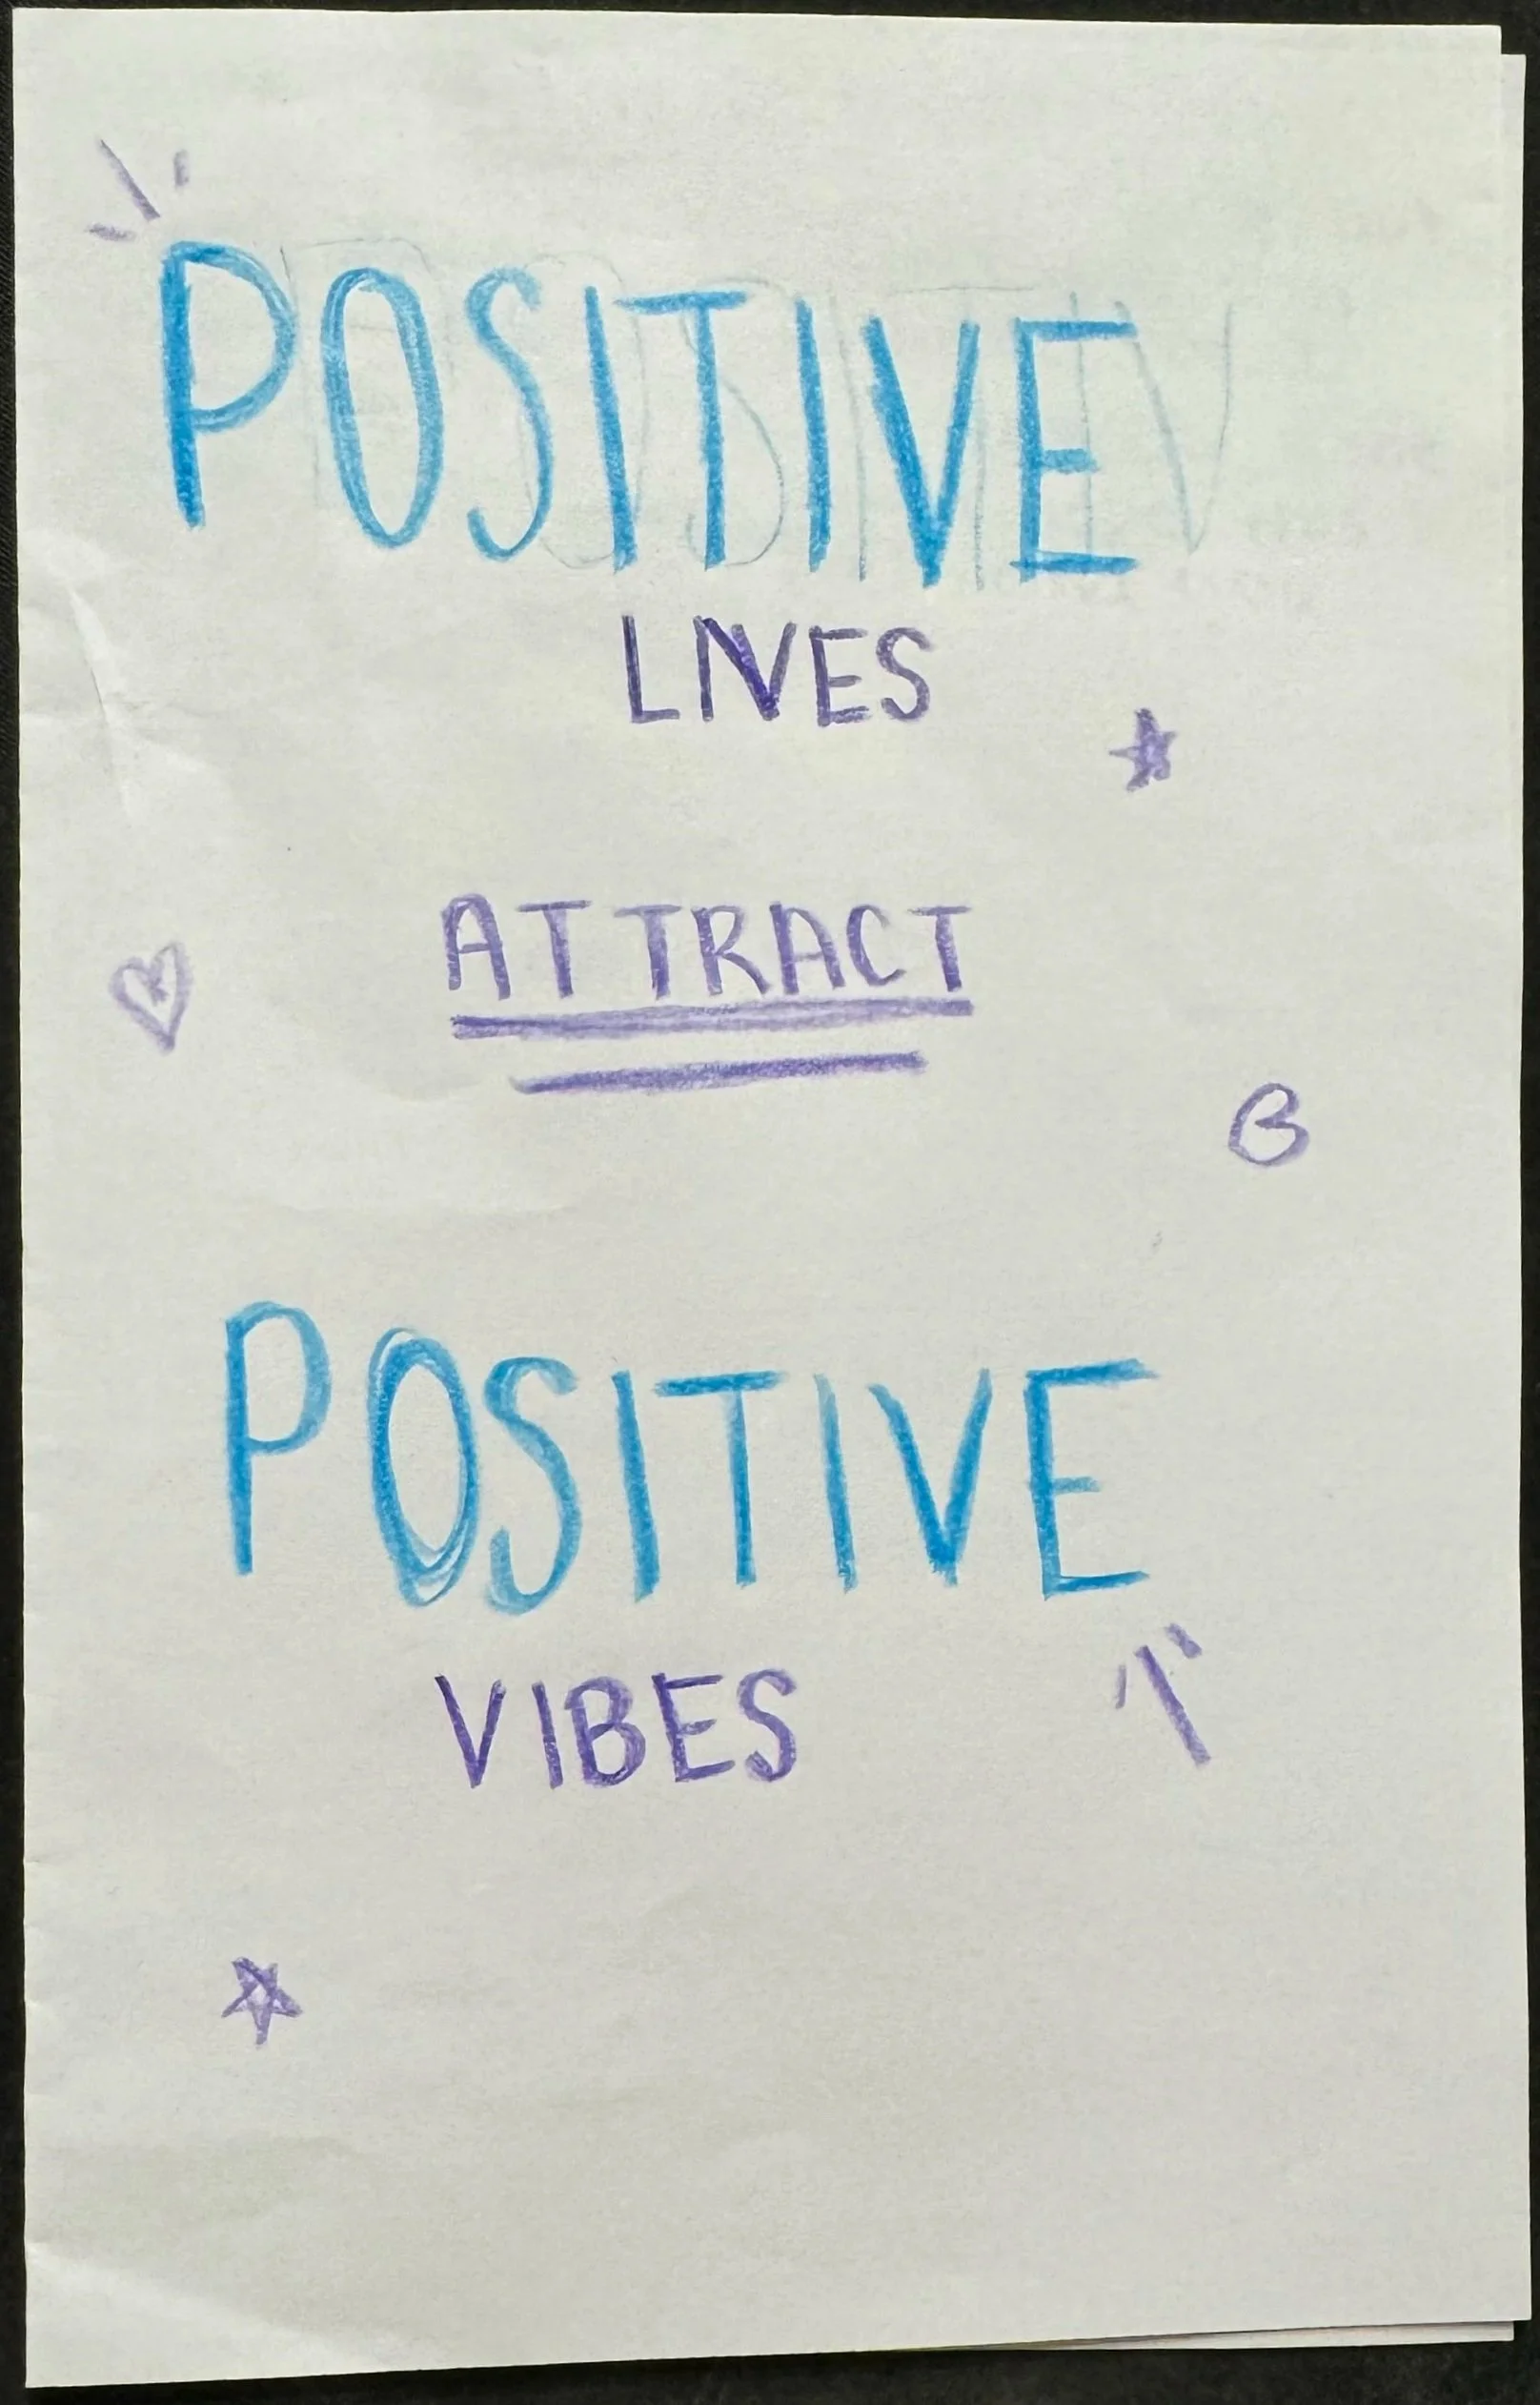 POSITIVE
LIVES
ATTRACT
POSITIVE
VIBES